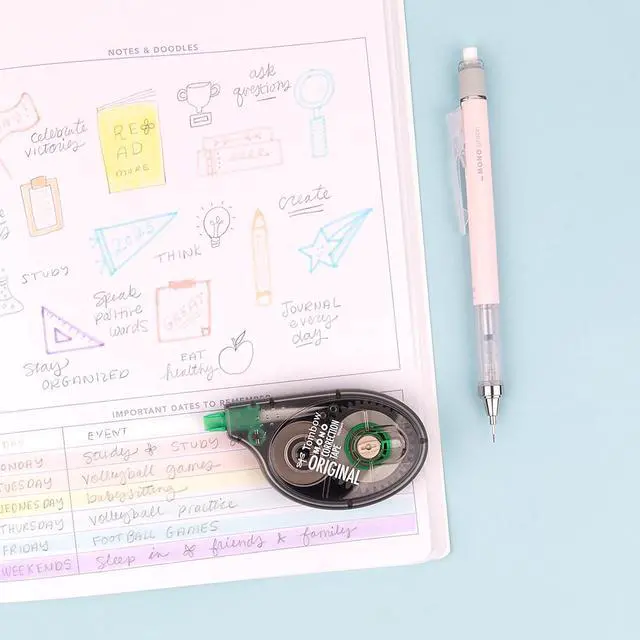 NOTES & DOODLES
ask
questions
celebrate
victories
RE
AD
MORE
create
THINK
STUDY
Speak
positive
words
GREAT
JOURNAL
every
day
Stay
ORGANIZED
EAT
healthy
MONO graph
IMPORTANT DATES TO REMEMBER
DAY
EVENT
MONDAY
study
TUESDAY
volleyball games
WEDNESDAY
babysitting
THURSDAY
volleyball practice
FRIDAY
FOOTBALL GAMES
WEEKENDS
sleep in & friends & family
Tombow
MONO
CORRECTION
TAPE
ORIGINAL